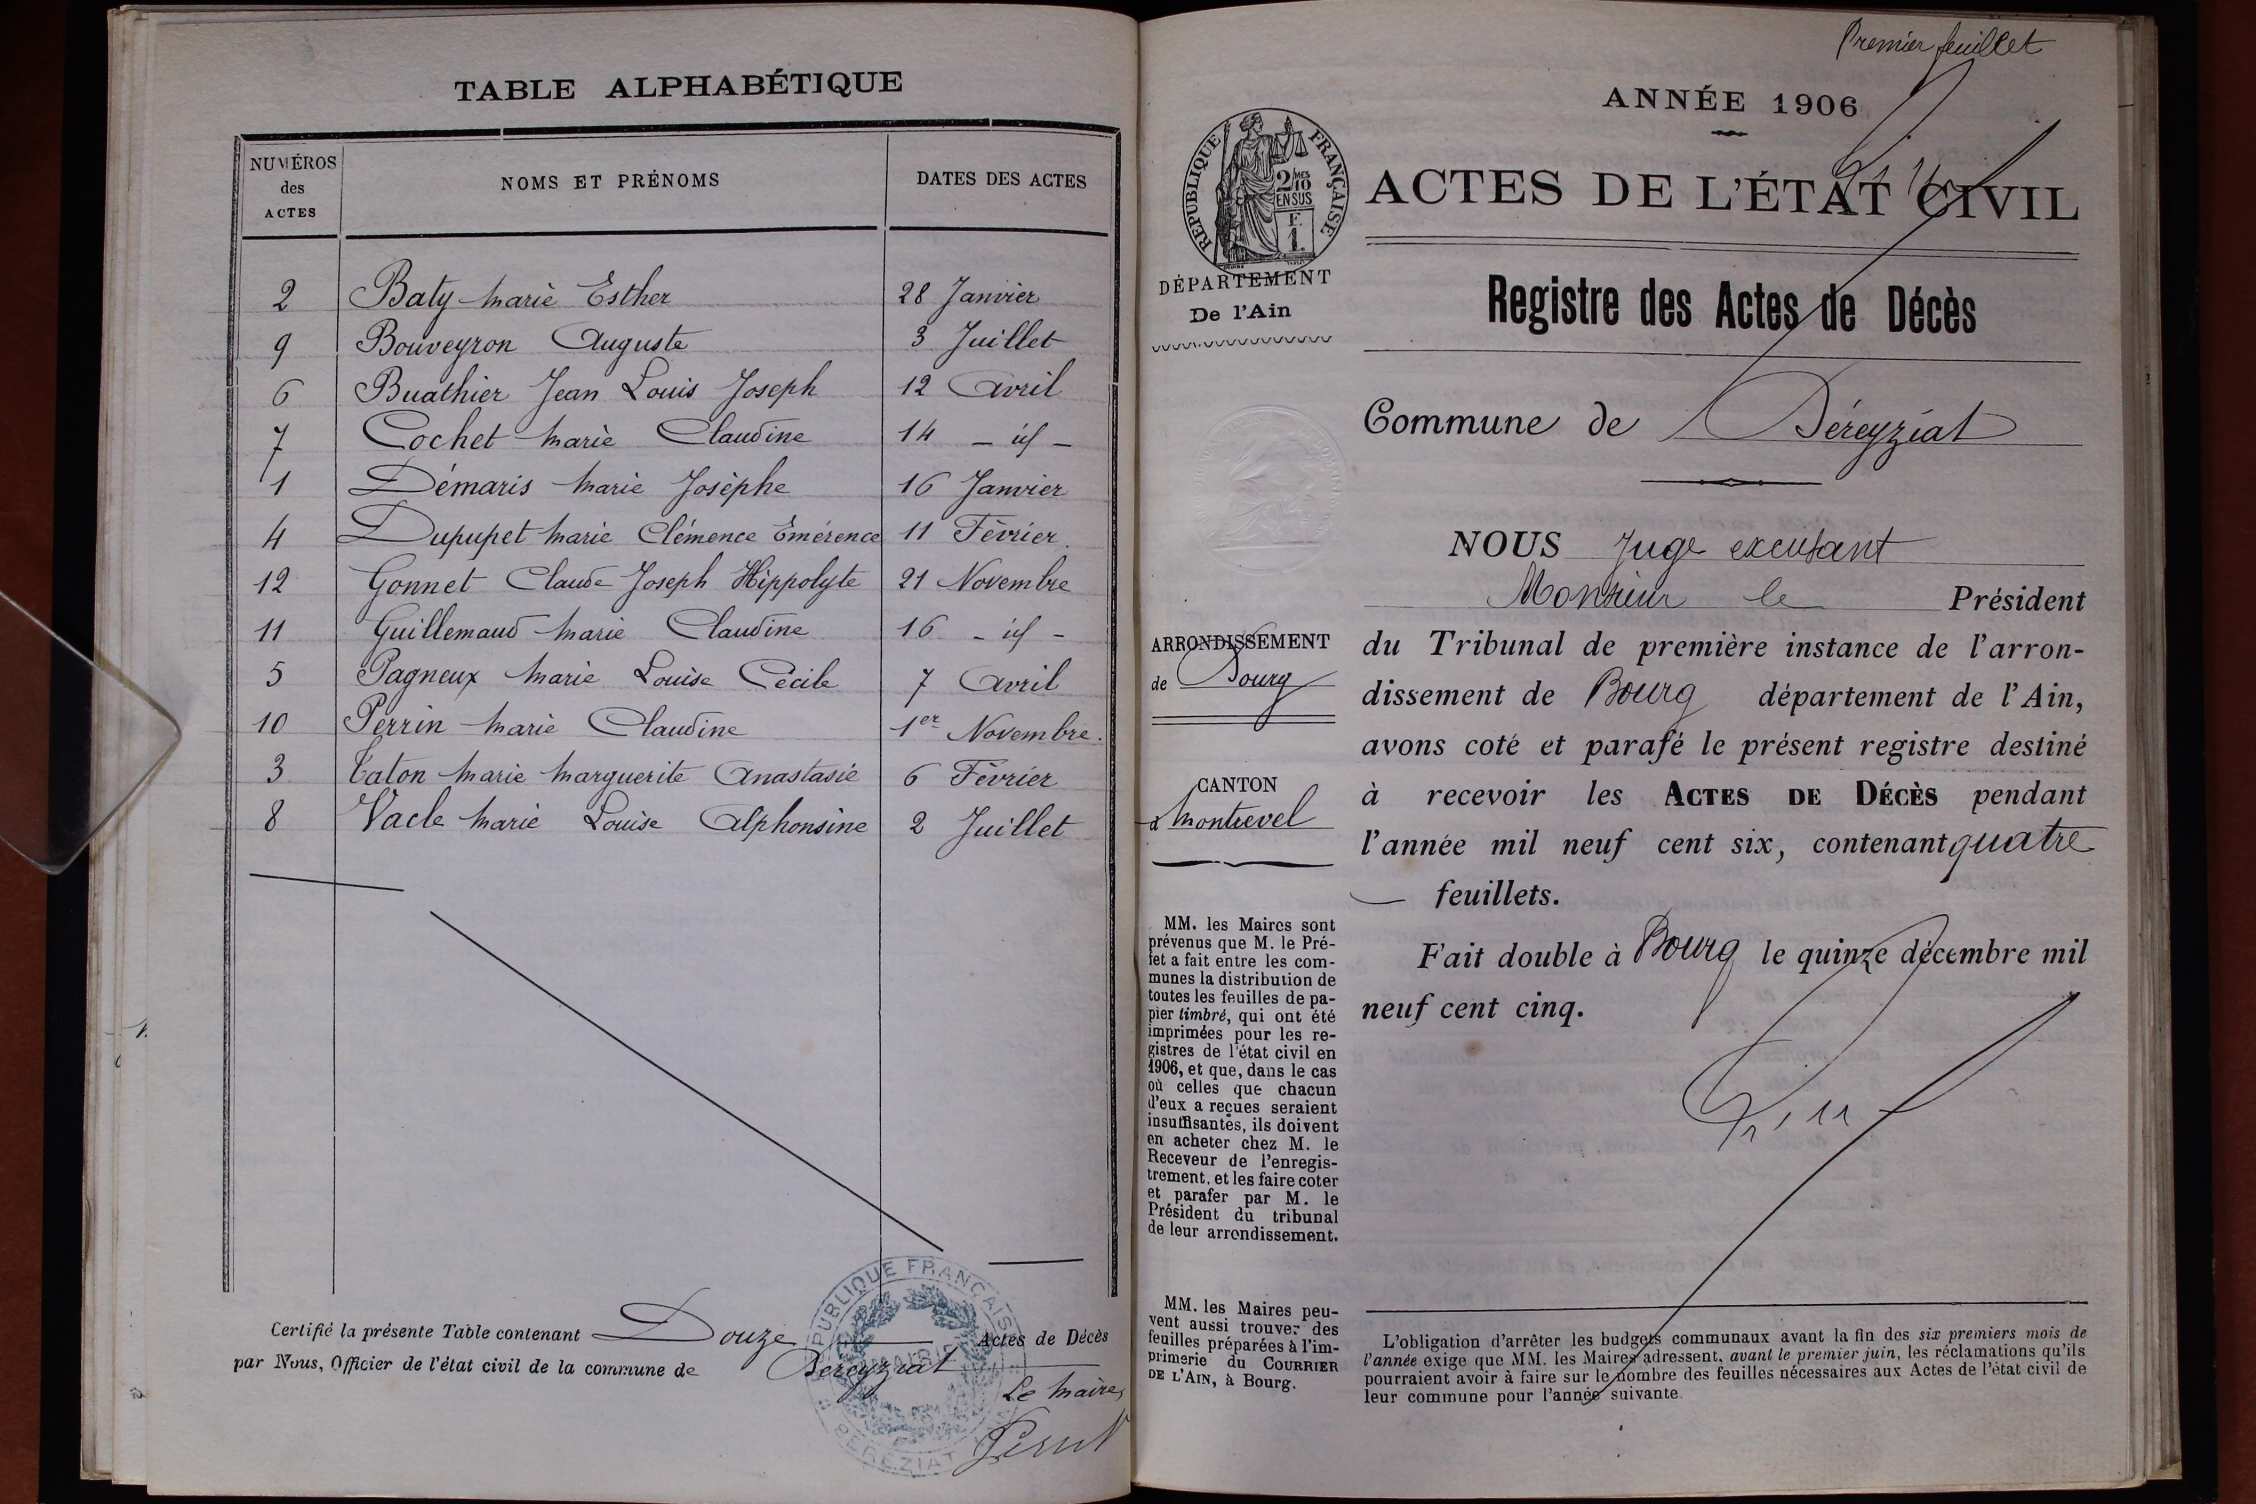 TABLE ALPHABÉTIQUE
NUMÉROS
des
ACTES
NOMS ET PRÉNOMS
DATES DES ACTES
2 Baty Marie Esther 28 Janvier
9 Bouveyron Auguste 3 Juillet
6 Buathier Jean Louis Joseph 12 Avril
7 Cochet Marie Claudine 14 - id -
1 Démaris Marie Josèphe 16 Janvier
4 Dupupet Marie Clémence Emérence 11 Février
12 Gonnet Claude Joseph Hippolyte 21 Novembre
11 Guillemaud Marie Claudine 16 - id -
5 Pagneux Marie Louise Cécile 7 Avril
10 Perrin Marie Claudine 1er Novembre.
3 Taton Marie Marguerite Anastasie 6 Février
8 Vacle Marie Louise Alphonsine 2 Juillet
Certifié la présente Table contenant Douze Actes de Décès
par Nous, Officier de l'état civil de la commune de Béréyziat
Le Maire,
RÉPUBLIQUE FRANÇAISE
BÉRÉZIAT
Premier feuillet
ANNÉE 1906
ACTES DE L'ÉTAT CIVIL
Registre des Actes de Décès
Commune de Béréyziat
NOUS Juge excusant
Monsieur le Président
du Tribunal de première instance de l'arron-
dissement de Bourg département de l'Ain,
avons coté et parafé le présent registre destiné
à recevoir les ACTES DE DÉCÈS pendant
l'année mil neuf cent six, contenant quatre
feuillets.
Fait double à Bourg le quinze décembre mil
neuf cent cinq.
RÉPUBLIQUE FRANÇAISE
2/10 MES
EN SUS
F.
1.
DÉPARTEMENT
De l'Ain
ARRONDISSEMENT
de Bourg
CANTON
d Montrevel
MM. les Maires sont
prévenus que M. le Pré-
fet a fait entre les com-
munes la distribution de
toutes les feuilles de pa-
pier timbré, qui ont été
imprimées pour les re-
gistres de l'état civil en
1906, et que, dans le cas
où celles que chacun
d'eux a reçues seraient
insuffisantes, ils doivent
en acheter chez M. le
Receveur de l'enregis-
trement, et les faire coter
et parafer par M. le
Président du tribunal
de leur arrondissement.
MM. les Maires peu-
vent aussi trouver des
feuilles préparées à l'im-
primerie du COURRIER
DE L'AIN, à Bourg.
L'obligation d'arrêter les budgets communaux avant la fin des six premiers mois de
l'année exige que MM. les Maires adressent, avant le premier juin, les réclamations qu'ils
pourraient avoir à faire sur le nombre des feuilles nécessaires aux Actes de l'état civil de
leur commune pour l'année suivante.